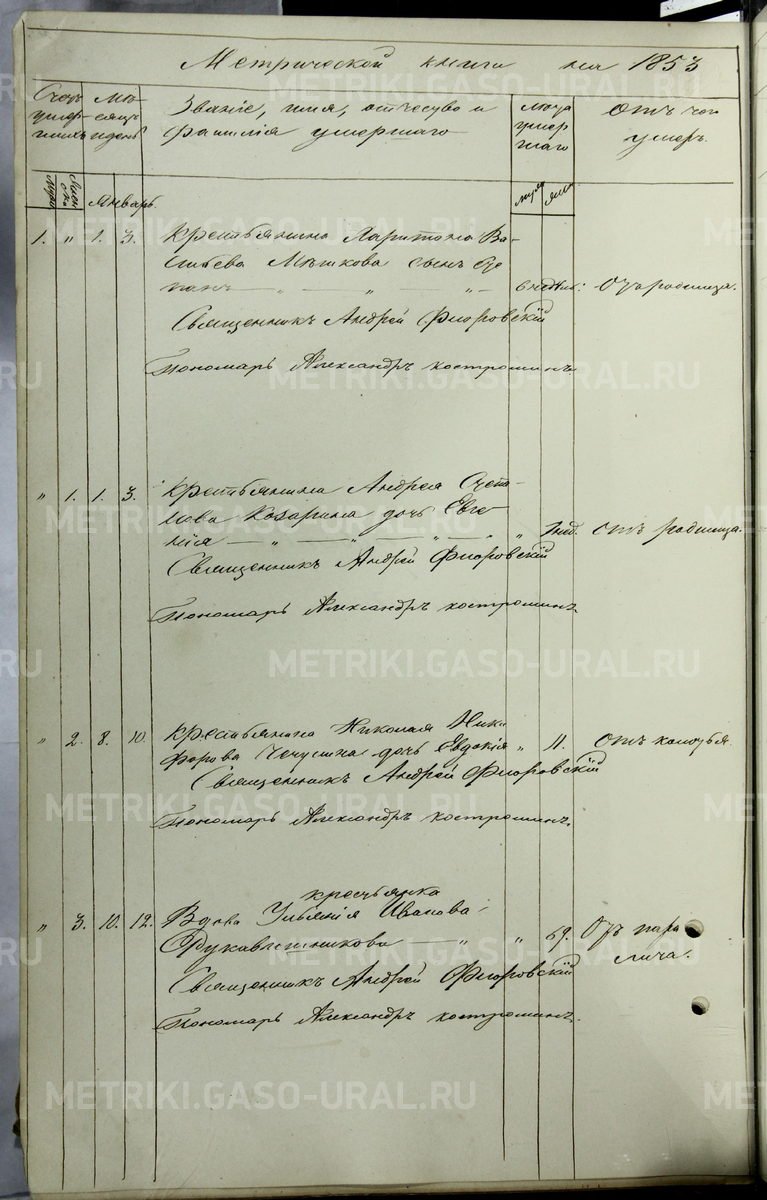 Метрической книги на 1853
Счетъ умер-шихъ
Мѣ-сяцъ и день
Званіе, имя, отчество и
фамилія умершаго
лѣта умер шаго
отъ чего умеръ.
Муж. Жен ска
Январь.
муж жен
1. " 1. 3. Крестьянина Харитона Ва-
сильева Мѣшкова сынъ Сте
панъ — " — " — " — 6 недѣл: Отъ родимца.
Священникъ Андрей Флоровскій
Пономарь Александръ Костроминъ
" 1. 1. 3. Крестьянина Андрея Степа-
нова Козарина дочь Евге
нія — " — " — " — " нед. отъ родимца.
Священникъ Андрей Флоровскій
Пономарь Александръ Костроминъ.
" 2. 8. 10. Крестьянина Николая Ники
форова Чечулина дочь Евдокія " 11. Отъ колотья.
Священникъ Андрей Флоровскій
Пономарь Александръ Костроминъ.
крестьянка
" 3. 10. 12. Вдова Ульянія Иванова
Рукавишникова — " " 69. Отъ пара
лича.
Священникъ Андрей Флоровскій
Пономарь Александръ Костроминъ.
METRIKI.GASO-URAL.RU